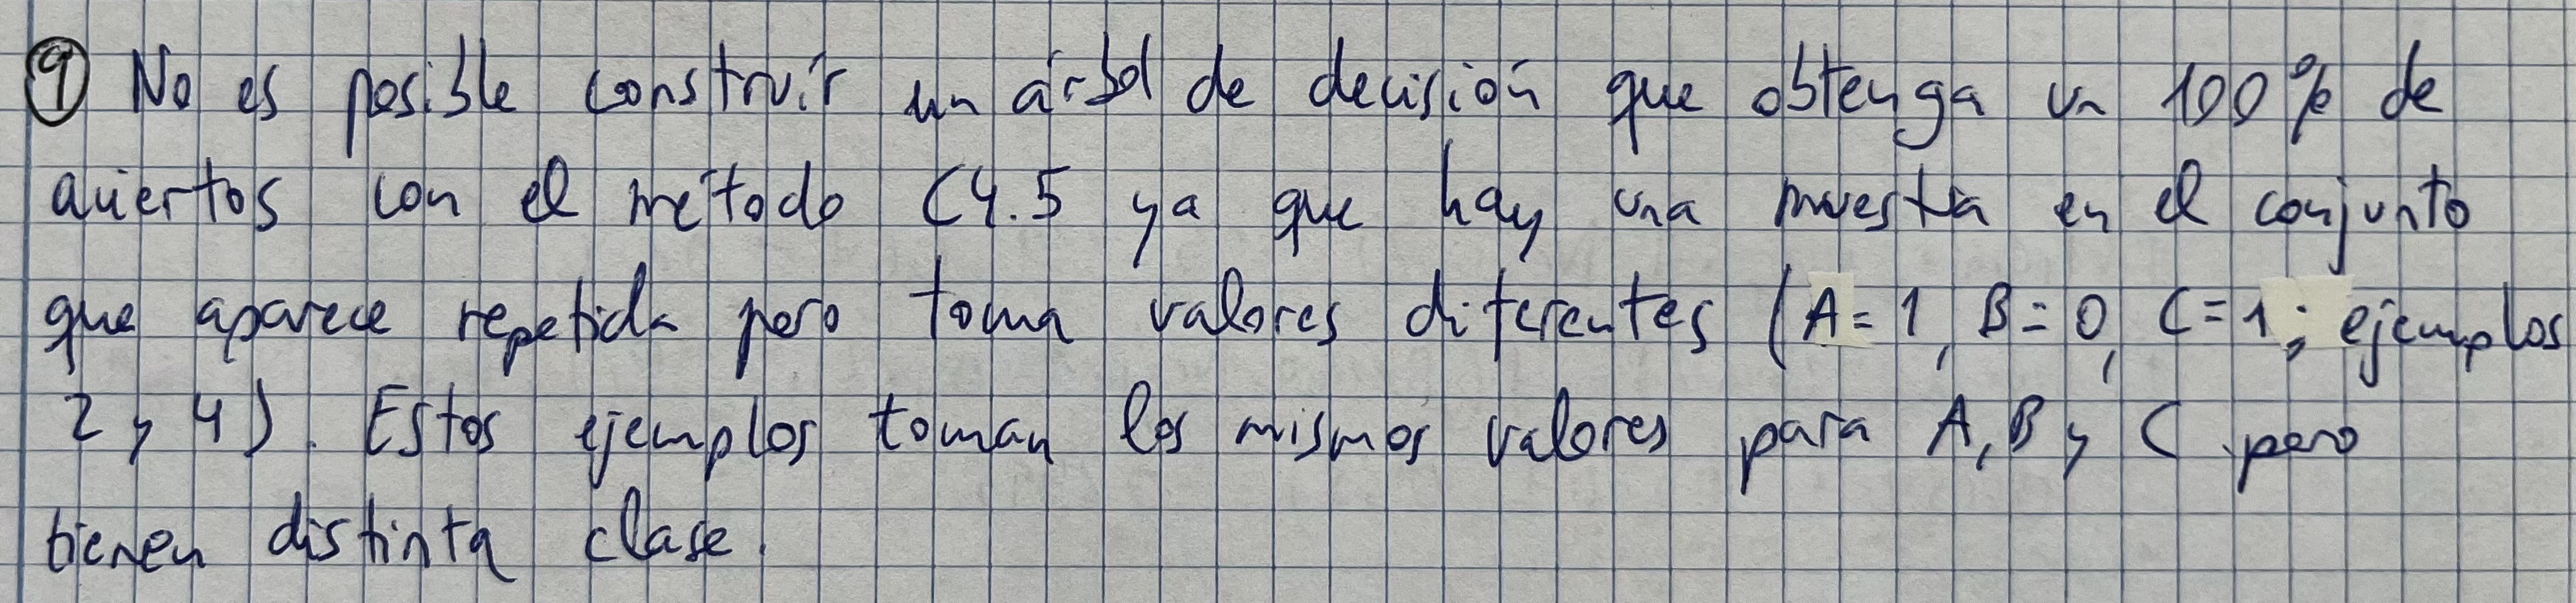 9 No es posible construir un árbol de decisión que obtenga un 100% de
aciertos con el método C4.5 ya que hay una muestra en el conjunto
que aparece repetida pero toma valores diferentes (A=1, B=0, C=1; ejemplos
2 y 4). Estos ejemplos toman los mismos valores para A, B y C pero
tienen distinta clase.